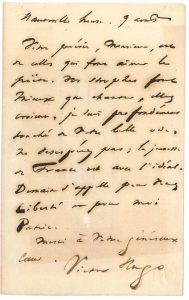 Hauteville house. 9 août
Votre poésie, Monsieur, est
de celles qui font aimer le
poète. Vos strophes font
mieux que chanter, elles
croient, je suis profondément
touché de votre belle ode,
ne désespérez pas; la jeunesse
de France est avec l'idéal.
Demain s'appelle pour vous
Liberté et pour moi
Patrie.
Merci à votre généreux
cœur.
Victor Hugo